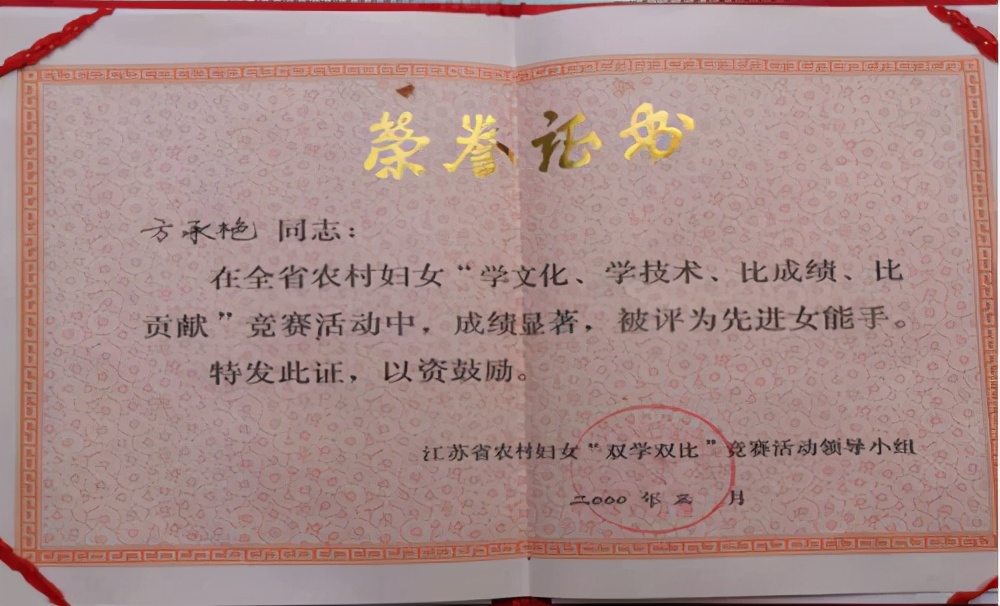 荣誉证书
方承艳 同志：
在全省农村妇女“学文化、学技术、比成绩、比
贡献”竞赛活动中，成绩显著，被评为先进女能手。
特发此证，以资鼓励。
江苏省农村妇女“双学双比”竞赛活动领导小组
二000年 月